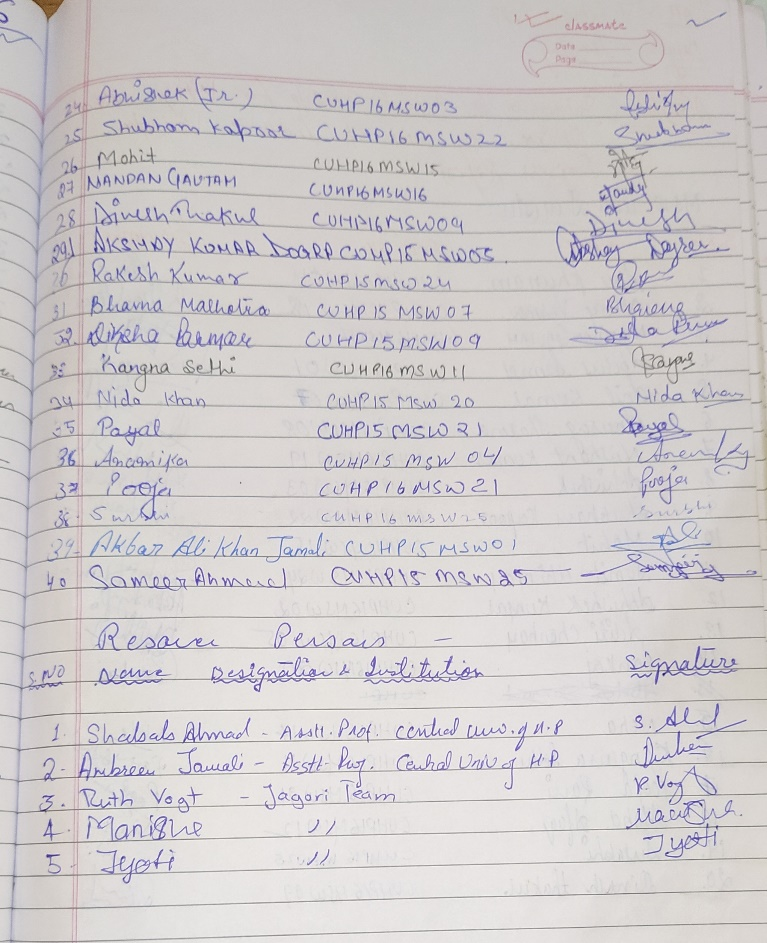 classmate
Date
Page
24 Abhishek (Jr.) CUHP16MSW03
25 Shubham Kapoor CUHP16MSW22 Shubham
26 Mohit CUHP16MSW15
27 NANDAN GAUTAM CUHP16MSW16
28 Dinesh Thakul CUHP16MSW09 Dinesh
29) AKSHAY KUMAR DOGRA CUHP15MSW03. Akshay Dogra
Rakesh Kumar CUHP15MSW24
31 Bhavna Malhotra CUHP15 MSW07
32. Diksha Parmar CUHP15MSW09
Kangna Sethi CUHP16MSW11
34 Nida Khan CUHP15 MSW 20 Nida Khan
35 Payal CUHP15 MSW 21 Payal
36 Anamika CUHP15 MSW 04
37 Pooja CUHP16MSW21 Pooja
38. Surbhi CUHP16 MSW Surbhi
39- Akbar Ali Khan Jamali CUHP15MSW01
40 Sameer Ahmad CUHP15 MSW25
Resource Persons -
S.NO Name Designation & Institution Signature
1. Ahmad - Asstt. Prof. Central Univ. of H.P
2- Ambreen Jamali - Asstt. Prof. Central Univ of H.P
3. Ruth Vogt - Jagori Team R. Vogt
4. Manisha 〃
5. Jyoti 〃 Jyoti